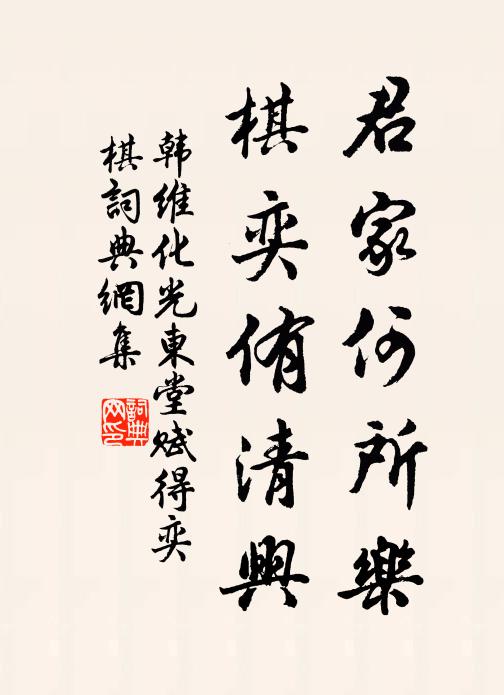 君家何所樂
棋奕侑清興
韩維化光東堂赋得奕
棋詞典網集
詞典网印